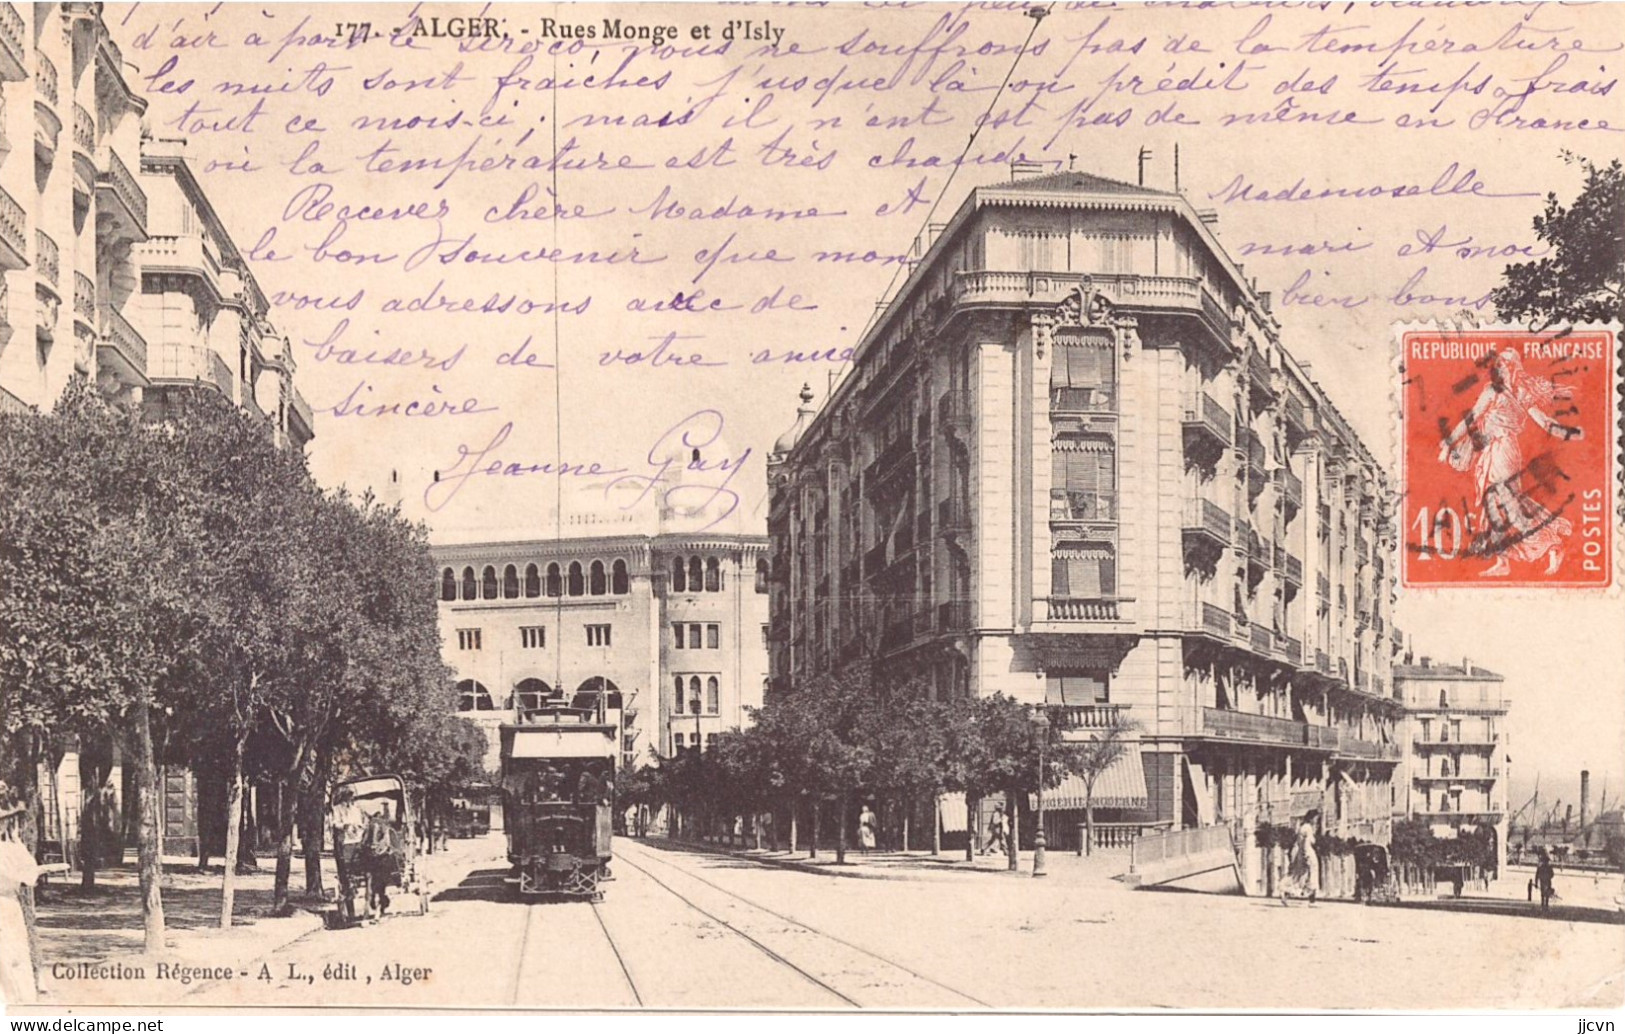 177. - ALGER. - Rues Monge et d'Isly
d'air à part le siroco, nous ne souffrons pas de la température
les nuits sont fraiches jusque là on prédit des temps frais
tout ce mois-ci; mais il n'ent est pas de même en France
où la température est très chaude.
Recevez chère Madame et Mademoiselle
le bon souvenir que mon mari et moi
vous adressons avec de bien bons
baisers de votre amie
sincère
Jeanne Gay
REPUBLIQUE FRANÇAISE
10c
POSTES
ALGER
MODERNE
Collection Régence - A L., édit, Alger
jjcvn